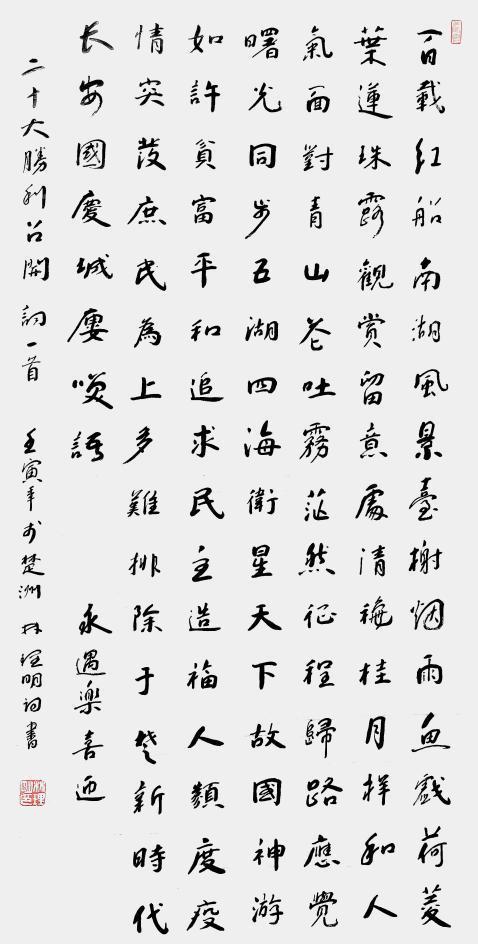 百載紅船南湖風景臺榭烟雨魚戲荷菱
葉蓮珠露觀賞留意處清梅桂月祥和人
氣面對青山花吐霧茫然征程歸路應覺
曙光同步五湖四海衛星天下故國神游
如許貧富平和追求民主造福人類度疫
情突發庶民為上多難排除于楚新時代
長安國慶城廔喚語 永遇樂喜迎
二十大勝利召開詞一首 壬寅年於楚洲林理明詞書